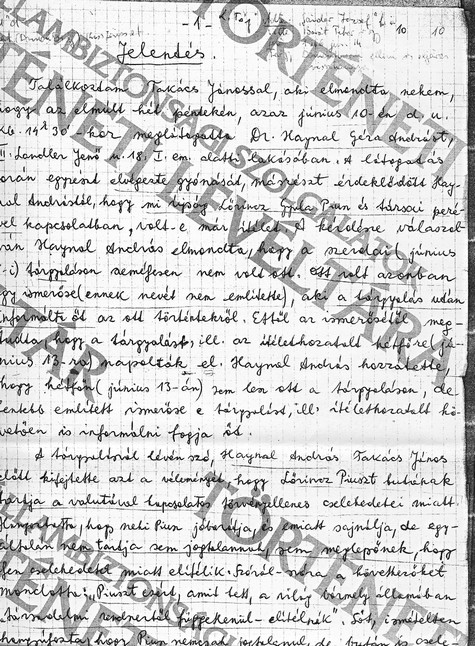 -1-
Jelentés.
Találkoztam Takács Jánossal, aki elmondotta nekem,
hogy az elmúlt hét péntekén, azaz június 10-én d. u.
kb. 14h30-kor meglátogatta Dr. Haynal Géza Andrást,
III. Landler Jenő u. 18. I. em. alatti lakásában. A látogatás
során egyrészt elvégezte gyónását, másrészt érdeklődött Hay-
nal Andrástól, hogy mi újság Lőrincz Gyula Pius és társai peré-
vel kapcsolatban, volt-e már ítélet. A kérdésre válaszol-
ván Haynal András elmondotta, hogy a szerdai (június
-i) tárgyaláson személyesen nem volt ott. Ott volt azonban
egy ismerőse (ennek nevét nem említette), aki a tárgyalás után
informálta őt az ott történtekről. Ettől az ismerősétől meg-
tudta, hogy a tárgyalást, ill. az ítélethozatalt hétfőre (jú-
nius 13-ra) napolták el. Haynal András hozzátette,
hogy hétfőn (június 13-án) sem lesz ott a tárgyaláson, de
fentebb említett ismerőse e tárgyalást, ill. ítélethozatalt kö-
vetően is informálni fogja őt.
A tárgyalásról lévén szó, Haynal András Takács János
előtt kifejtette azt a véleményét, hogy Lőrincz Piuszt butának
tartja a valutával kapcsolatos törvényellenes cselekedetei miatt.
Hangoztatta, hogy neki Pius jóbarátja, és emiatt sajnálja, de egy-
általán nem tartja sem jogtalannak, sem meglepőnek, hogy
ilyen cselekedetei miatt elítélik. Szóról-szóra a következőket
mondotta: "Piuszt ezért, amit tett, a világ bármely államában
társadalmi rendszertől függetlenül - elítélnék". Sőt, ismételten
hangoztatta, hogy Pius nemcsak jogtalanul, de bután is csele-
ÁLLAMBIZTONSÁGI SZOLGÁLATOK
TÖRTÉNETI LEVÉLTÁRA